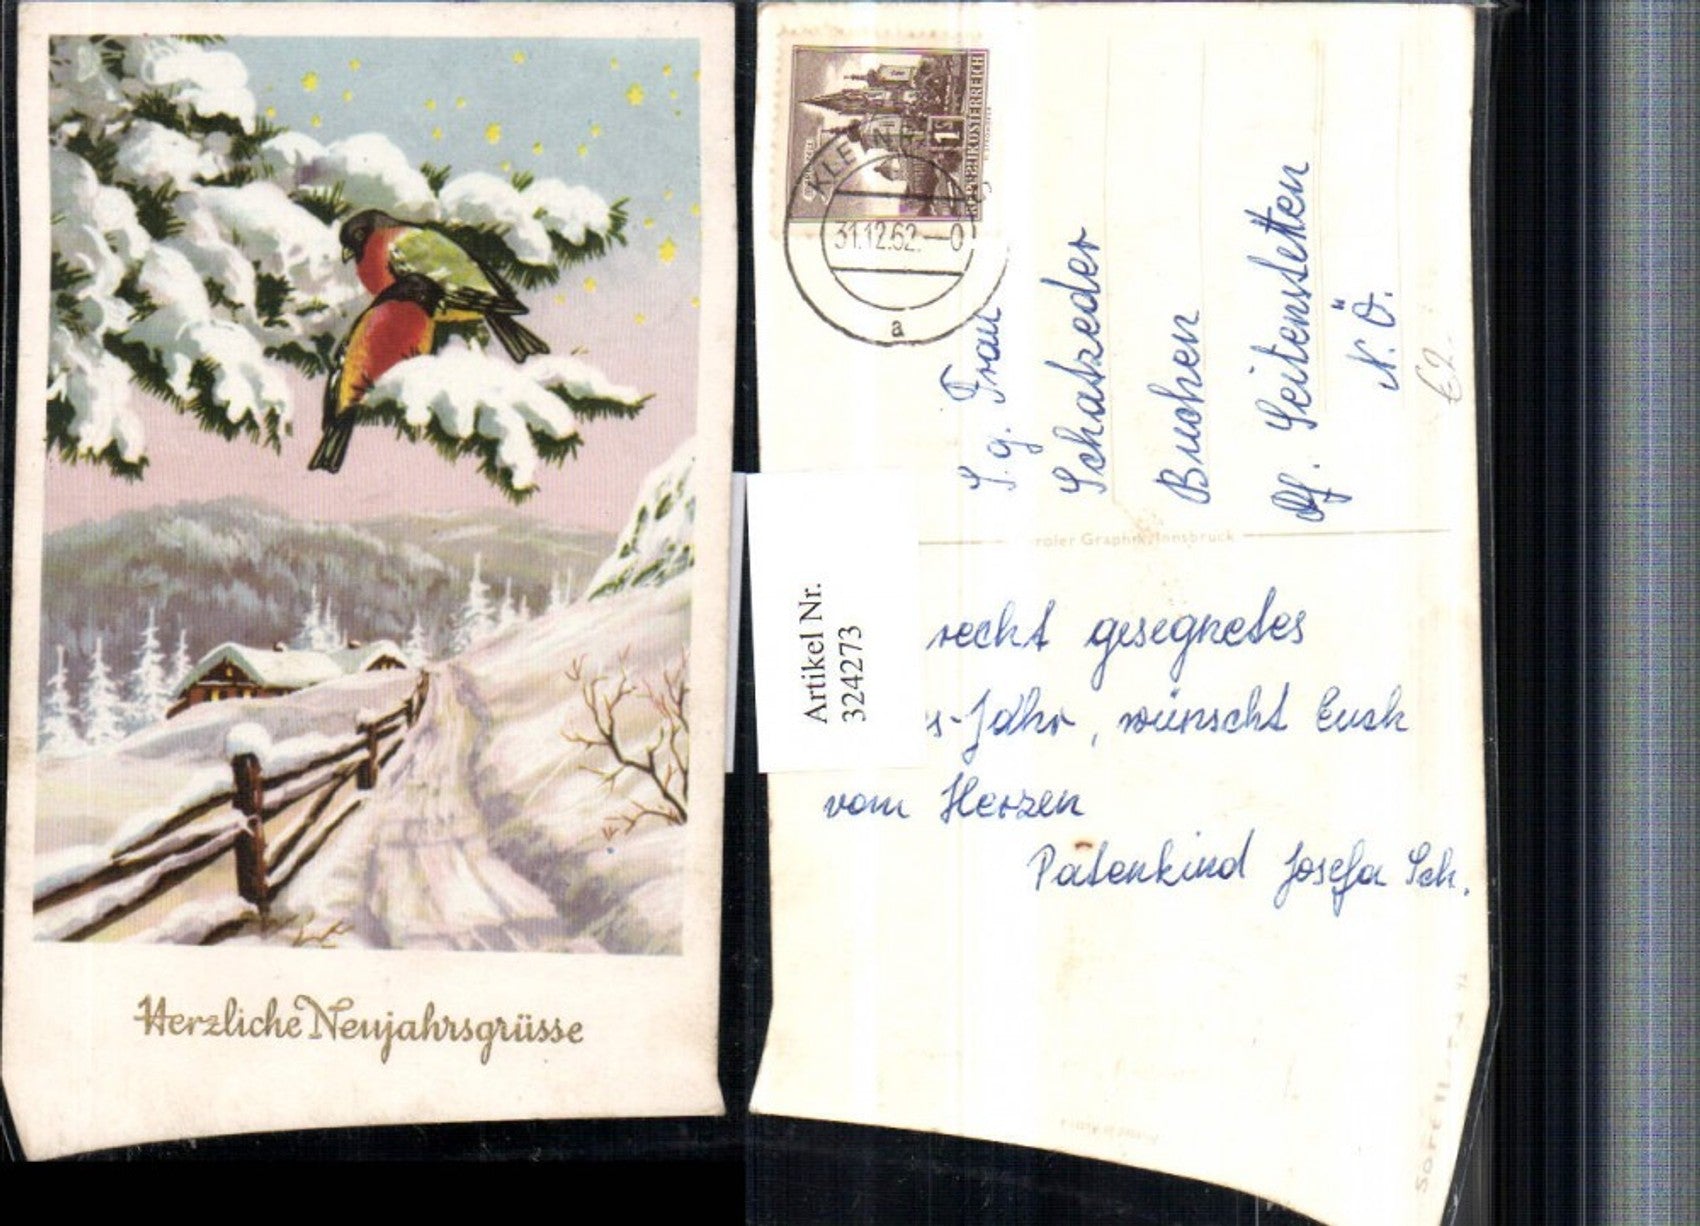 Herzliche Neujahrsgrüsse
REPUBLIK ÖSTERREICH
1
31.12.62.-0
a
S. g. Frau
Schatzeder
Buchen
Pf. Seitenstetten
N.Ö.
roler Graphik, Innsbruck
Artikel Nr.
324273
recht gesegnetes
s-Jahr, wünscht Euch
vom Herzen
Patenkind Josefa Sch.